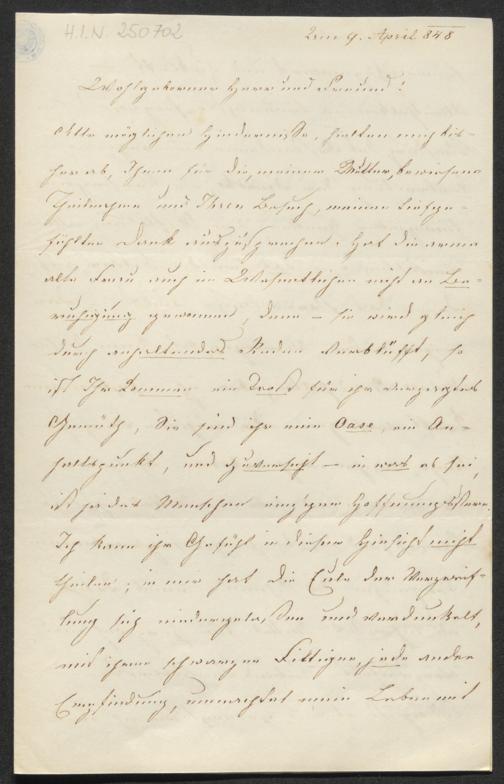 H.I.N. 250702
9. April 848
Wohlgeborner Herr und Freund!
Alle möglichen Hindernisse, hielten mich bis-
her ab, Ihnen für die, meiner Mutter, bewiesene
Theilnahme und Ihren Besuch, meinen tiefge-
fühlten Dank auszusprechen. Hat die arme
alte Frau auch im Wesentlichen nicht an Be-
ruhigung gewonnen, denn – sie wird gleich
durch anhaltendes Reden verblüfft, so
ist Ihr Kommen ein Trost für ihr verzagtes
Gemüth, Sie sind ihr eine Oase, ein An-
haltspunkt, und Zuversicht – in was es sei,
ist ja des Menschen einziger Hoffnungsstern.
Ich kann ihr Gefühl in dieser Hinsicht nicht
theilen; in mir hat die Eule der Verzweif-
lung sich niedergelassen und verdunkelt,
mit ihren schwarzen Fittigen, jede andere
Empfindung, umnachtet mein Leben mit